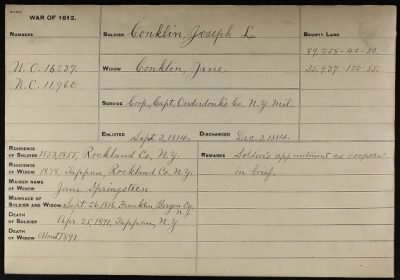 WAR OF 1812.
NUMBERS
SOLDIER Conklin, Joseph L.
BOUNTY LAND
89.258-40-50.
W.C. 15237.
WIDOW Conklin, Jane.
35.937-120 55.
W.C. 11960
SERVICE Corp, Capt. Onderdonk's Co. N.Y. Mil.
ENLISTED Sept. 3, 1814. DISCHARGED Dec. 3, 1814.
RESIDENCE OF SOLDIER 1853, 1855, Rockland Co., N.Y.
REMARKS Soldier's appointment as corporal
RESIDENCE OF WIDOW 1878, Tappan, Rockland Co., N.Y.
in brief.
MAIDEN NAME OF WIDOW Jane Springsteen
MARRIAGE OF SOLDIER AND WIDOW Sept. 26, 1816, Franklin Bergen Co., N.J.
DEATH OF SOLDIER Apr. 25, 1871, Tappan, N.Y.
DEATH OF WIDOW About 1891.